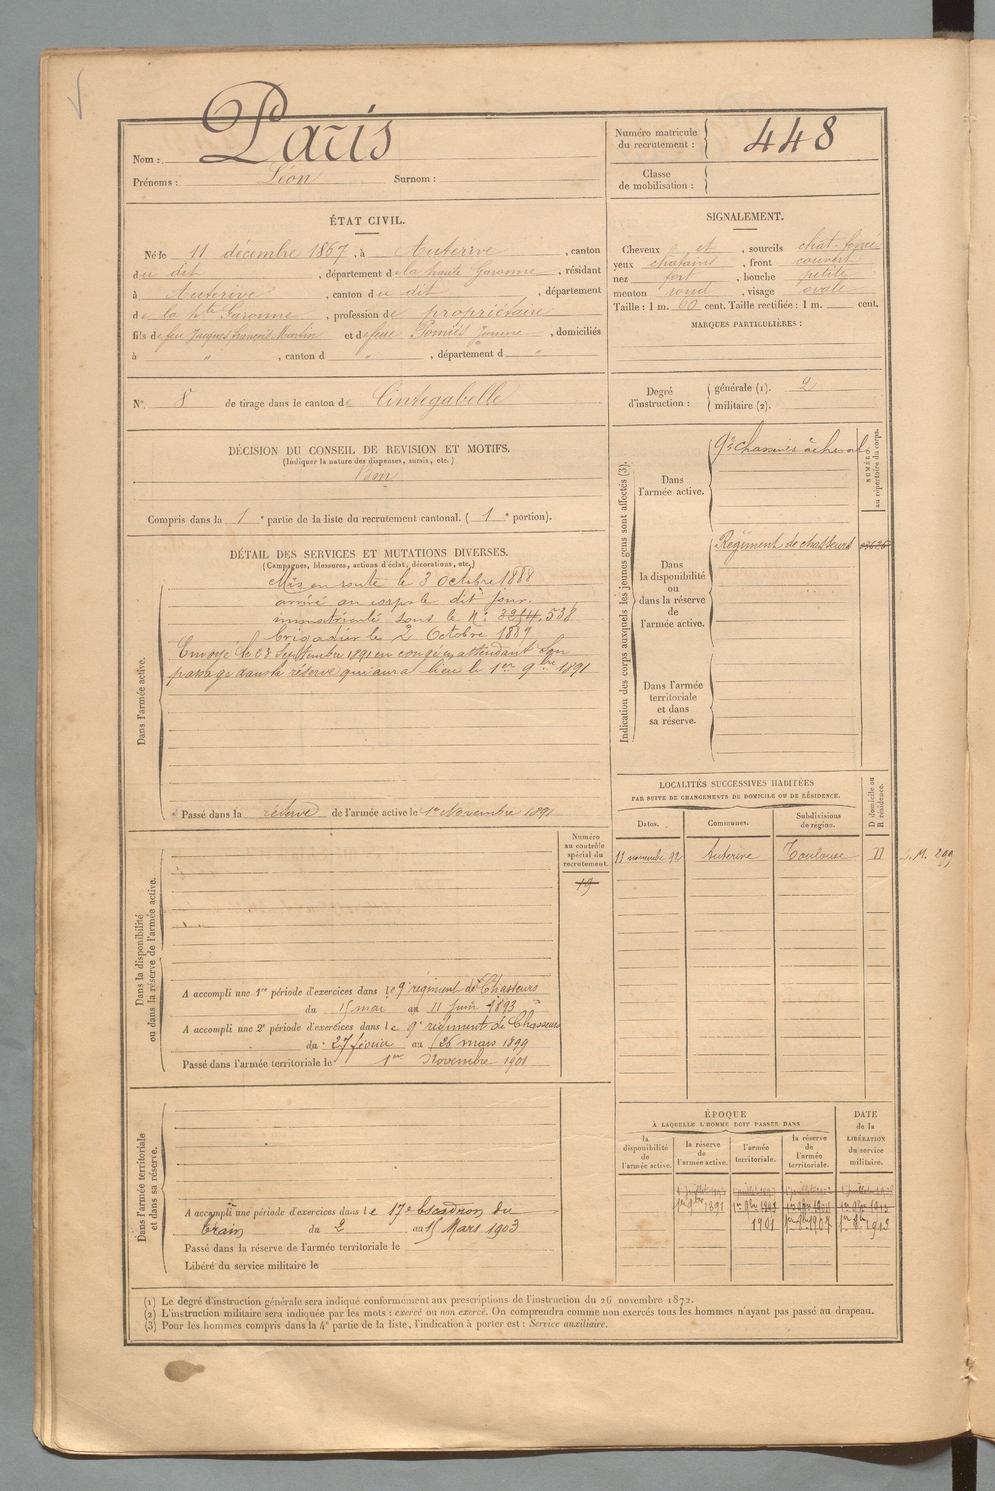 Nom : Paris
Prénoms : Léon Surnom :
Numéro matricule
du recrutement : 448
Classe
de mobilisation :
ÉTAT CIVIL.
Né le 11 décembre 1867, à Auterive, canton
du dit, département de la haute Garonne, résidant
à Auterive, canton du dit, département
de la hte Garonne, profession de propriétaire
fils de feu Jacques François Martin et de feue Pomiès Jeanne, domiciliés
à " , canton d " , département d "
N° 8 de tirage dans le canton de Cintegabelle
SIGNALEMENT.
Cheveux et , sourcils chat-foncé
yeux chatains , front couvert
nez fort , bouche petite
menton rond , visage ovale
Taille : 1 m. 60 cent. Taille rectifiée : 1 m. cent.
MARQUES PARTICULIÈRES :
Degré
d'instruction :
générale (1). 2
militaire (2).
DÉCISION DU CONSEIL DE REVISION ET MOTIFS.
(Indiquer la nature des dispenses, sursis, etc.)
Bon
Compris dans la 1e partie de la liste du recrutement cantonal. (1e portion).
DÉTAIL DES SERVICES ET MUTATIONS DIVERSES.
(Campagnes, blessures, actions d'éclat, décorations, etc.)
Dans l'armée active.
Mis en route le 3 octobre 1888
arrivé au corps le dit jour.
immatriculé sous le N° 3254. 538
brigadier le 2 Octobre 1889
Envoyé le 28 Septembre 1891 en congé en attendant son
passage dans la réserve qui aura lieu le 1er 9bre 1891
Passé dans la réserve de l'armée active le 1er Novembre 1891
Indication des corps auxquels les jeunes gens sont affectés (3).
NUMÉRO
au répertoire du corps.
Dans
l'armée active.
9e chasseurs à cheval
Dans
la disponibilité
ou
dans la réserve
de
l'armée active.
Régiment de chasseurs
Dans l'armée
territoriale
et dans
sa réserve.
LOCALITÉS SUCCESSIVES HABITÉES
PAR SUITE DE CHANGEMENTS DE DOMICILE OU DE RÉSIDENCE.
Dates. Communes. Subdivisions
de région.
D domicile ou
R résidence.
11 novembre 92 Auterive Toulouse D
Dans la disponibilité
ou dans la réserve de l'armée active.
Numéro
au contrôle
spécial du
recrutement.
19
A accompli une 1re période d'exercices dans le 9e régiment de Chasseurs
du 15 mai au 11 Juin 1893
A accompli une 2e période d'exercices dans le 9e régiment de Chasseurs
du 27 février au 26 mars 1899
Passé dans l'armée territoriale le 1er Novembre 1901
Dans l'armée territoriale
et dans sa réserve.
A accompli une période d'exercices dans le 17e Escadron du
train du 2 au 15 Mars 1903
Passé dans la réserve de l'armée territoriale le
Libéré du service militaire le
ÉPOQUE
À LAQUELLE L'HOMME DOIT PASSER DANS
DATE
de la
LIBÉRATION
du service
militaire.
la
disponibilité
de
l'armée active.
la réserve
de
l'armée active.
l'armée
territoriale.
la réserve
de
l'armée
territoriale.
1er 9bre 1891
1901 1er 9bre 1907 1er 8bre 1913
(1) Le degré d'instruction générale sera indiqué conformément aux prescriptions de l'instruction du 26 novembre 1872.
(2) L'instruction militaire sera indiquée par les mots : exercé ou non exercé. On comprendra comme non exercés tous les hommes n'ayant pas passé au drapeau.
(3) Pour les hommes compris dans la 4e partie de la liste, l'indication à porter est : Service auxiliaire.